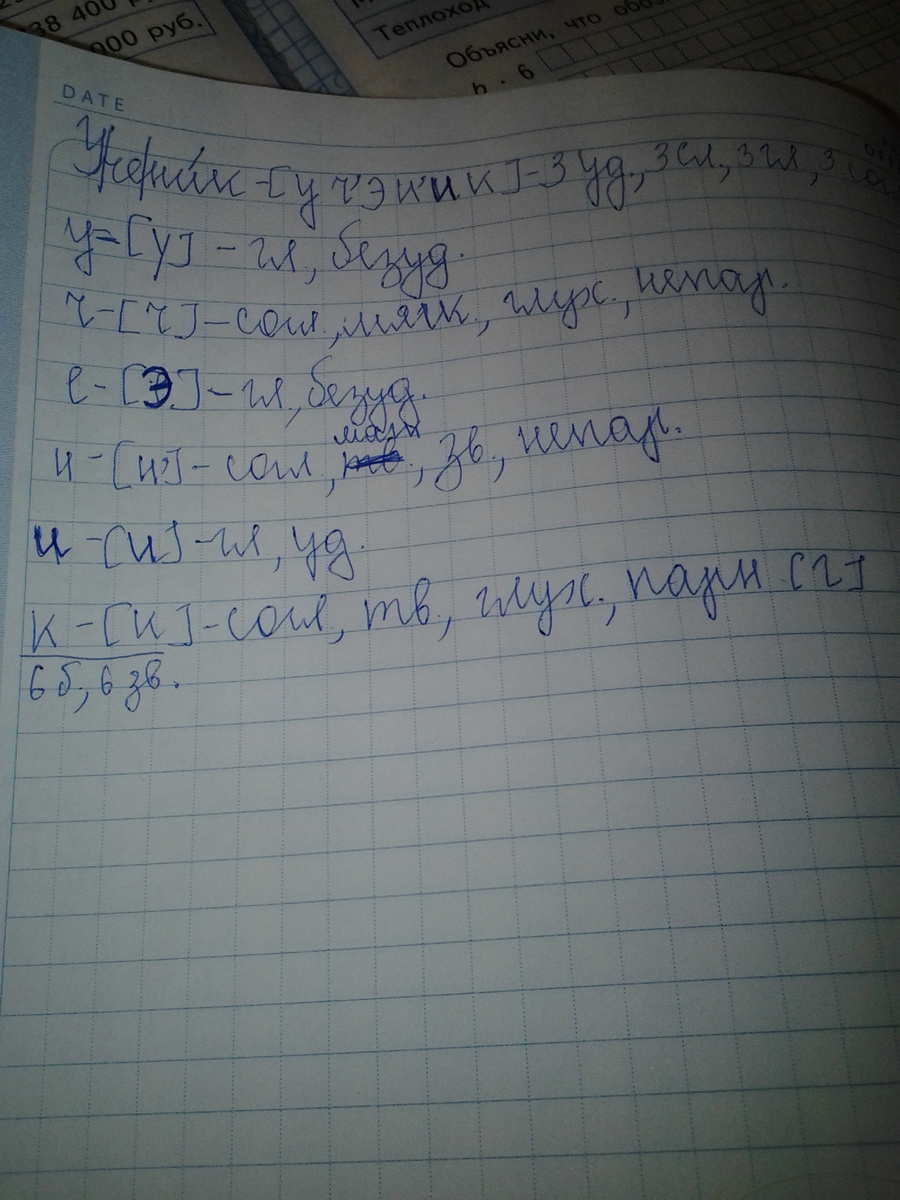 38 400 р
000 руб.
Теплоход
Объясни, что обоз
b · 6
DATE
Ученик - [учэник] - 3 уд, 3 сл, 3 гл, 3 согл
у = [у] - гл, безуд.
ч - [ч] - согл, мягк, глух., непар.
е - [э] - гл, безуд.
мягк
н - [н'] - согл, тв., зв., непар.
и - [и] - гл, уд.
к - [к] - согл, тв, глух., парн [г]
6 б, 6 зв.